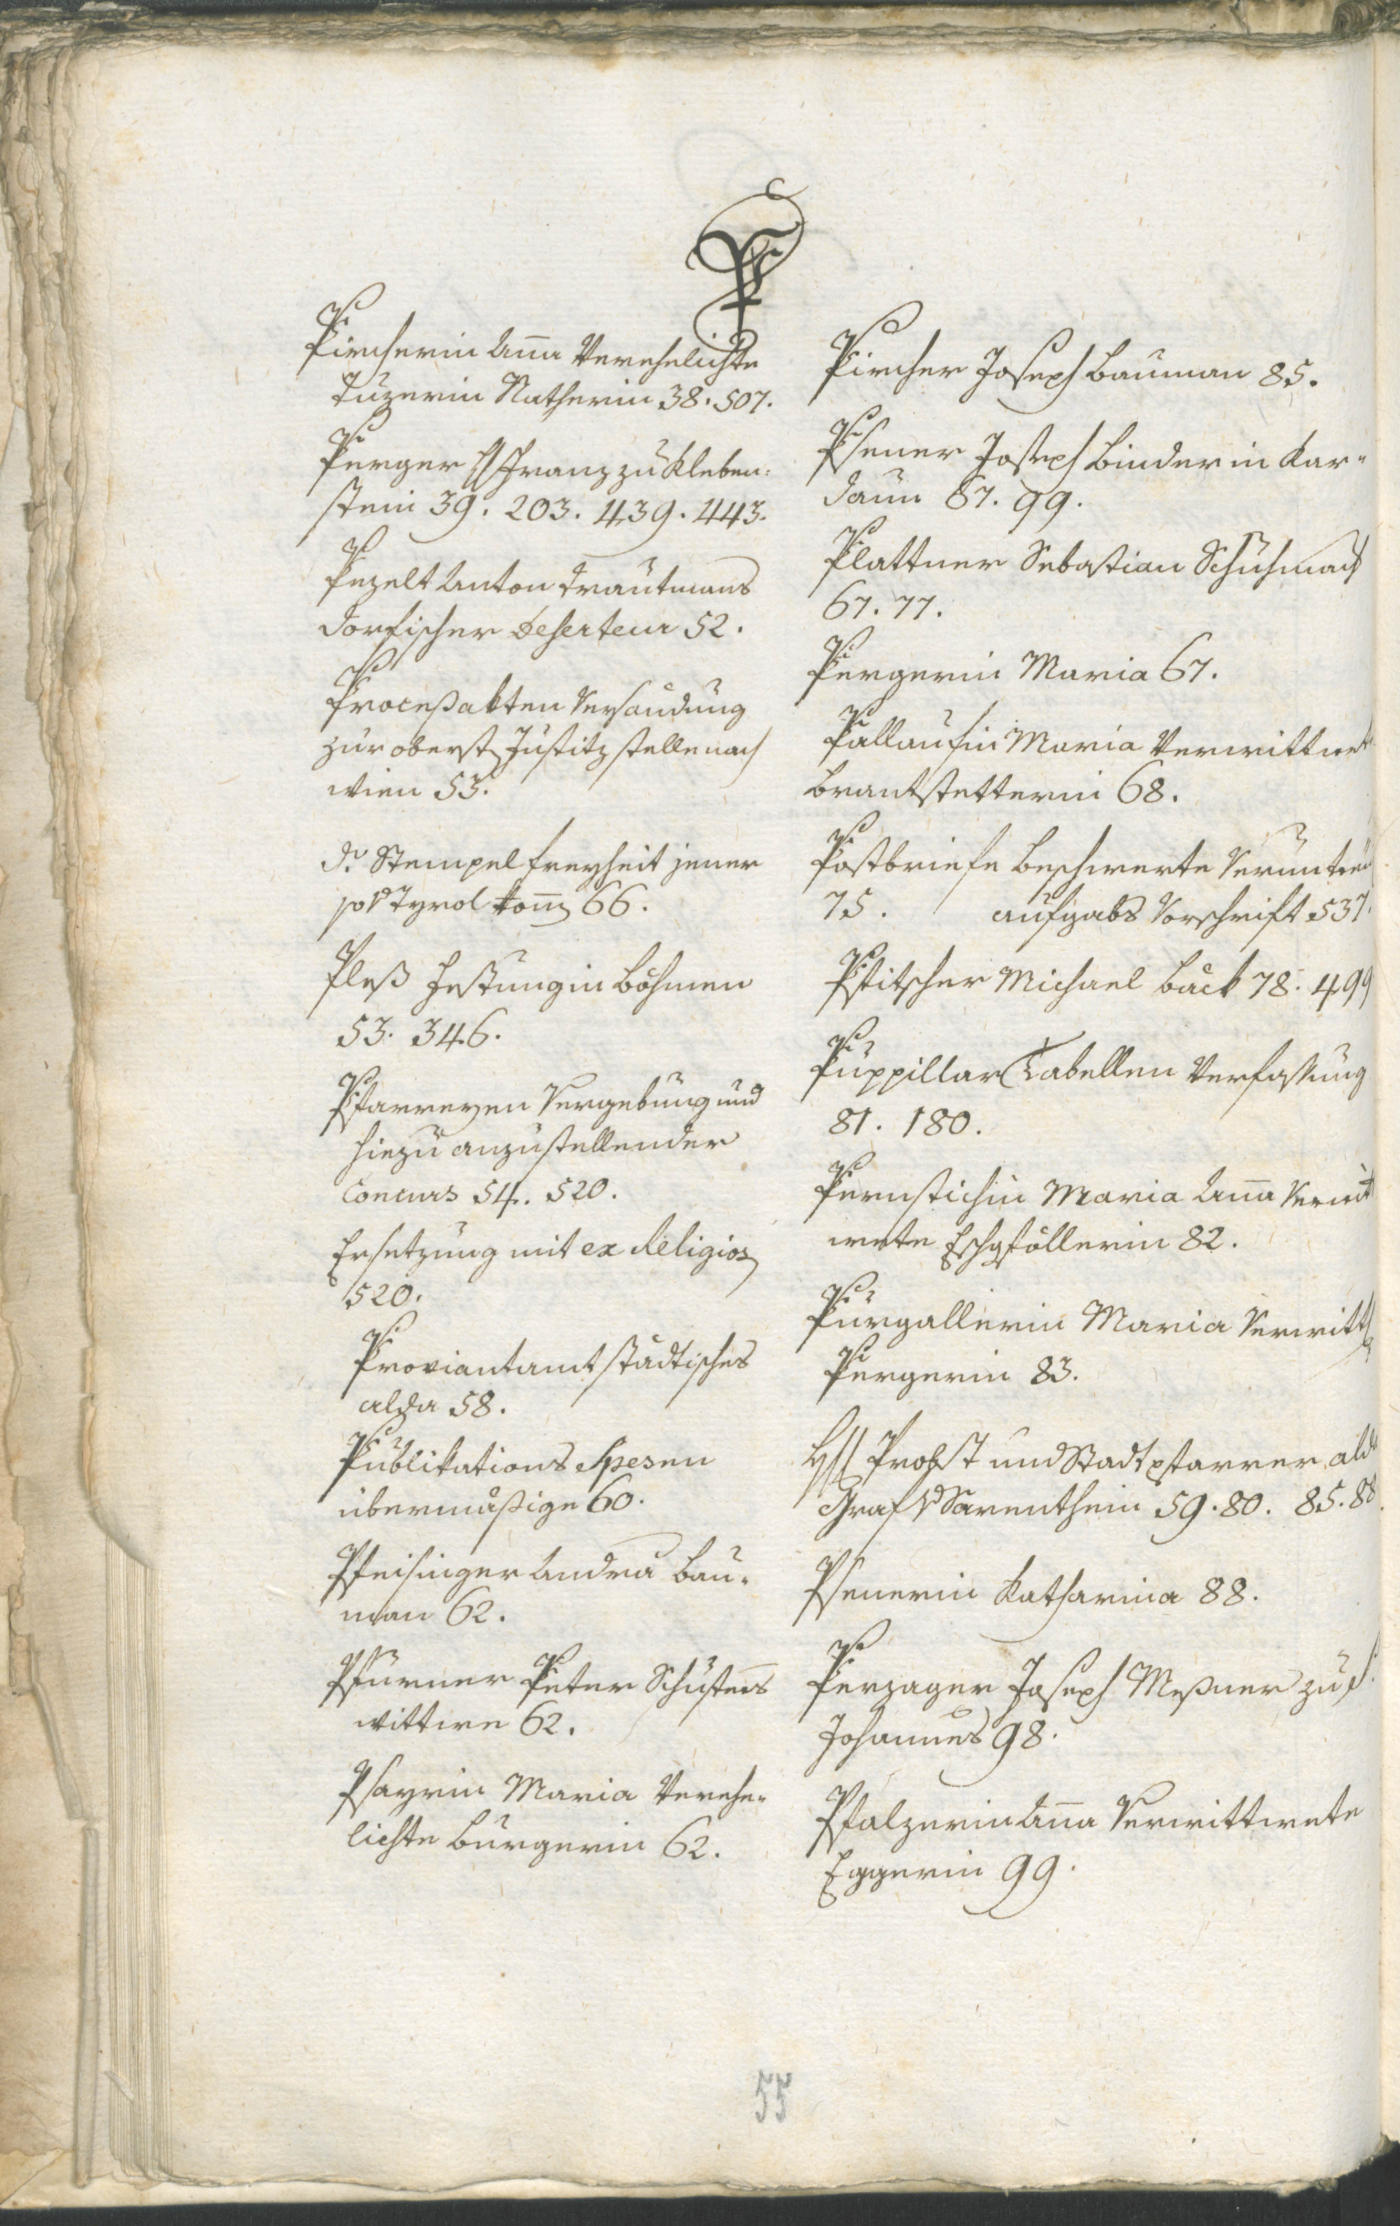 P
Pircherin Anna Verehelichte
Tuzerin Natherin 38. 507.
Perger H Franz zu Kleben-
stein 39. 203. 439. 443.
Pezelt Anton Trautmans
dorfischer Deserteur 52.
Proceßakten Versandung
zur oberst Justitz stelle nach
wien 53.
do Stempelfreyheit jener
so v Tyrol kom̅ 66.
Pleß Festung in Böhmen
53. 346.
Pfarreyen Vergebung und
hiezu anzustellender
Concurs 54. 520.
Ersetzung mit ex Religios
520.
Proviantamt städtisches
alda 58.
Publikations Spesen
übermäßige 60.
Pfeisinger Andrä Bau-
man 62.
Pfurner Peter Schusters
wittwe 62.
Psayrin Maria Verehe-
lichte Burgerin 62.
Pircher Joseph Bauman 85.
Psener Joseph Binder in Kar-
daun 67. 99.
Plattner Sebastian Schuhmach
67. 77.
Pergerin Maria 67.
Pallausin Maria Verwittwet
Brantstetterin 68.
Postbriefe beschwerte Veruntreu
75. aufgabs Vorschrift 537.
Pstitscher Michael Bäck 78. 499
Puppillar Tabellen Verfassung
81. 180.
Pernstichin Maria Anna Verwit
wete Eschgföllerin 82.
Purgallerin Maria Verwitt
Pergerin 83.
H Probst und Stadtpfarrer alda
Graf v Sarenthein 59. 80. 85. 88.
Psenerin Katharina 88.
Perzager Joseph Meßner zu S.
Johannes 98.
Pfalzerin Anna Verwittwete
Eggerin 99.
55